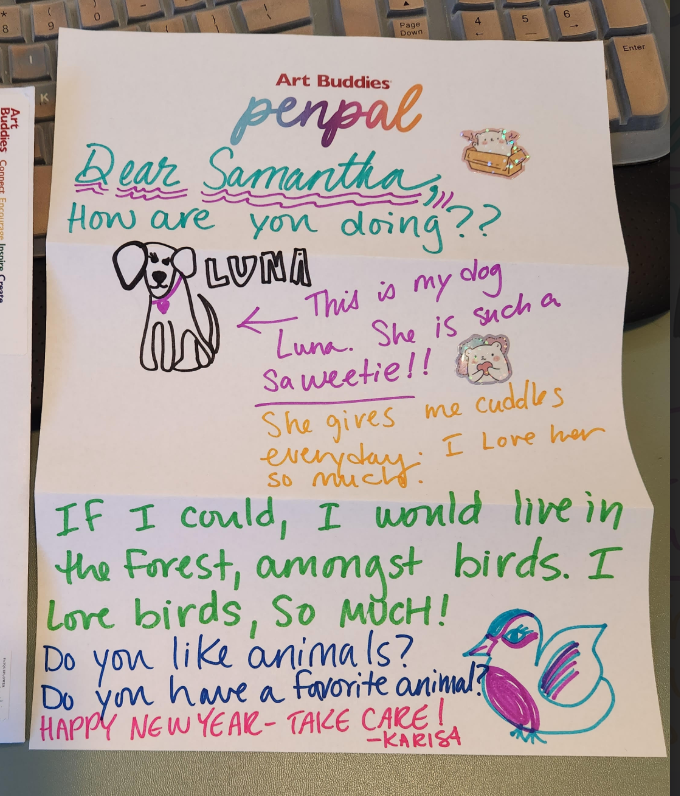 Art Buddies
penpal
Dear Samantha,
How are you doing??
LUNA
This is my dog
Luna. She is such a
saweetie!!
She gives me cuddles
everyday. I Love her
so much.
IF I could, I would live in
the Forest, amongst birds. I
Love birds, SO MUCH!
Do you like animals?
Do you have a favorite animal?
HAPPY NEW YEAR - TAKE CARE!
-KARISA
Art
Buddies Connect Encourage Inspire Create
Page
Down
4
5
6
Enter
8
9
0
K